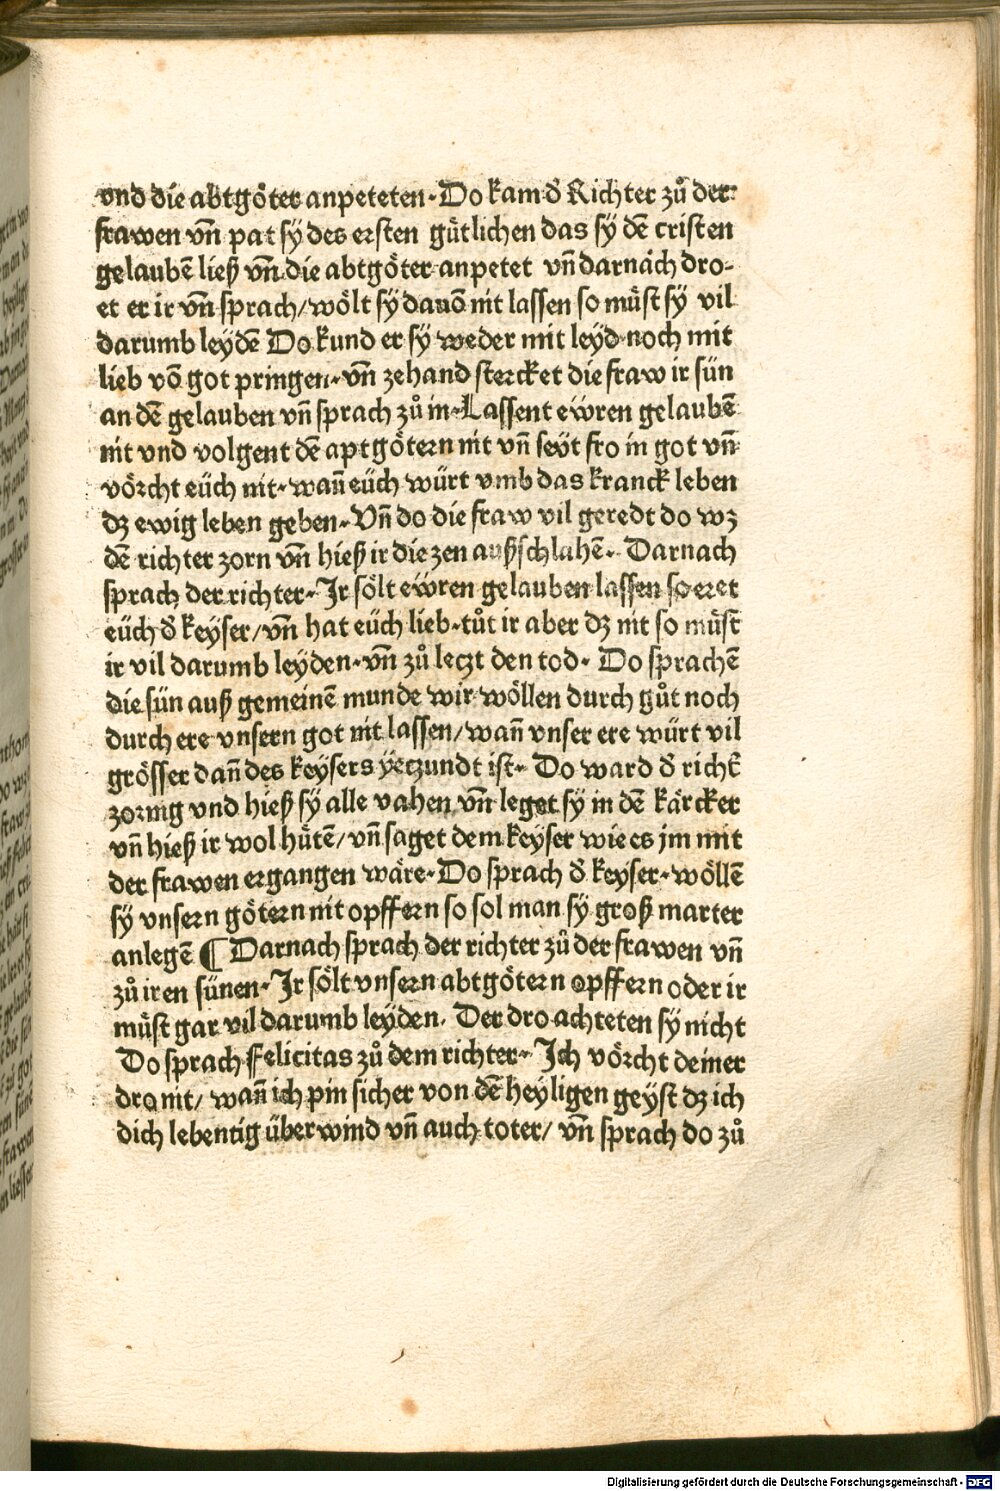 vnd die abtgöter anpeteten·Do kam d̕ Richter zů der
frawen vn̄ pat sy des ersten gütlichen das sy dē cristen
gelaubē ließ vn̄ die abtgöter anpetet vn̄ darnäch dro-
et er ir vn̄ sprach/wölt sy dauō nit lassen so müst sy vil
darumb leydē Do kund er sy weder mit leyd noch mit
lieb vō got pringen·vn̄ zehand stercket die fraw ir sün
an dē gelauben vn̄ sprach zů in·Lassent eẅren gelaubē
nit vnd volgent dē aptgötern nit vn̄ seyt fro in got vn̄
vörcht eüch nit·wan̄ eüch würt vmb das kranck leben
dz ewig leben geben·Vn̄ do die fraw vil geredt do wz
dē richter zorn vn̄ hieß ir die zen außschlahē· Darnach
sprach der richter·Jr sölt eẅren gelauben lassen so eret
eüch d̕ keyser/vn̄ hat eüch lieb·tůt ir aber dz nit so müst
ir vil darumb leyden·vn̄ zů leczt den tod· Do sprachē
die sün auß gemeinē munde wir wöllen durch gůt noch
durch ere vnsern got nit lassen/wan̄ vnser ere würt vil
grösser dan̄ des keysers yeczundt ist· Do ward d̕ richt̄
zornig vnd hieß sy alle vahen vn̄ leget sy in dē kärcker
vn̄ hieß ir wol hütē/vn̄ saget dem keyser wie es jm mit
der frawen ergangen wäre·Do sprach d̕ keyser·wöllē
sy vnsern götern nit opffern so sol man sy groß marter
anlegē ¶ Darnach sprach der richter zů der frawen vn̄
zů iren sünen·Jr sölt vnsern abtgötern opffern oder ir
müst gar vil darumb leyden. Der dro achteten sy nicht
Do sprach Felicitas zů dem richter·Jch vörcht deiner
dro nit/ wan̄ ich pin sicher von dē heyligen geyst dz ich
dich lebentig überwind vn̄ auch toter/ vn̄ sprach do zů
Digitalisierung gefördert durch die Deutsche Forschungsgemeinschaft - DFG